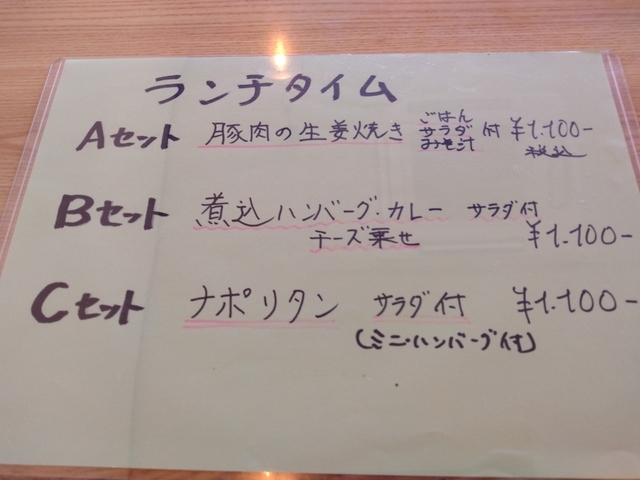 ランチタイム
Aセット 豚肉の生姜焼き ごはん サラダ みそ汁 付 ¥1.100-
税込
Bセット 煮込ハンバーグ・カレー サラダ付
チーズ乗せ ¥1.100-
Cセット ナポリタン サラダ付 ¥1.100-
(ミニ・ハンバーグ付)